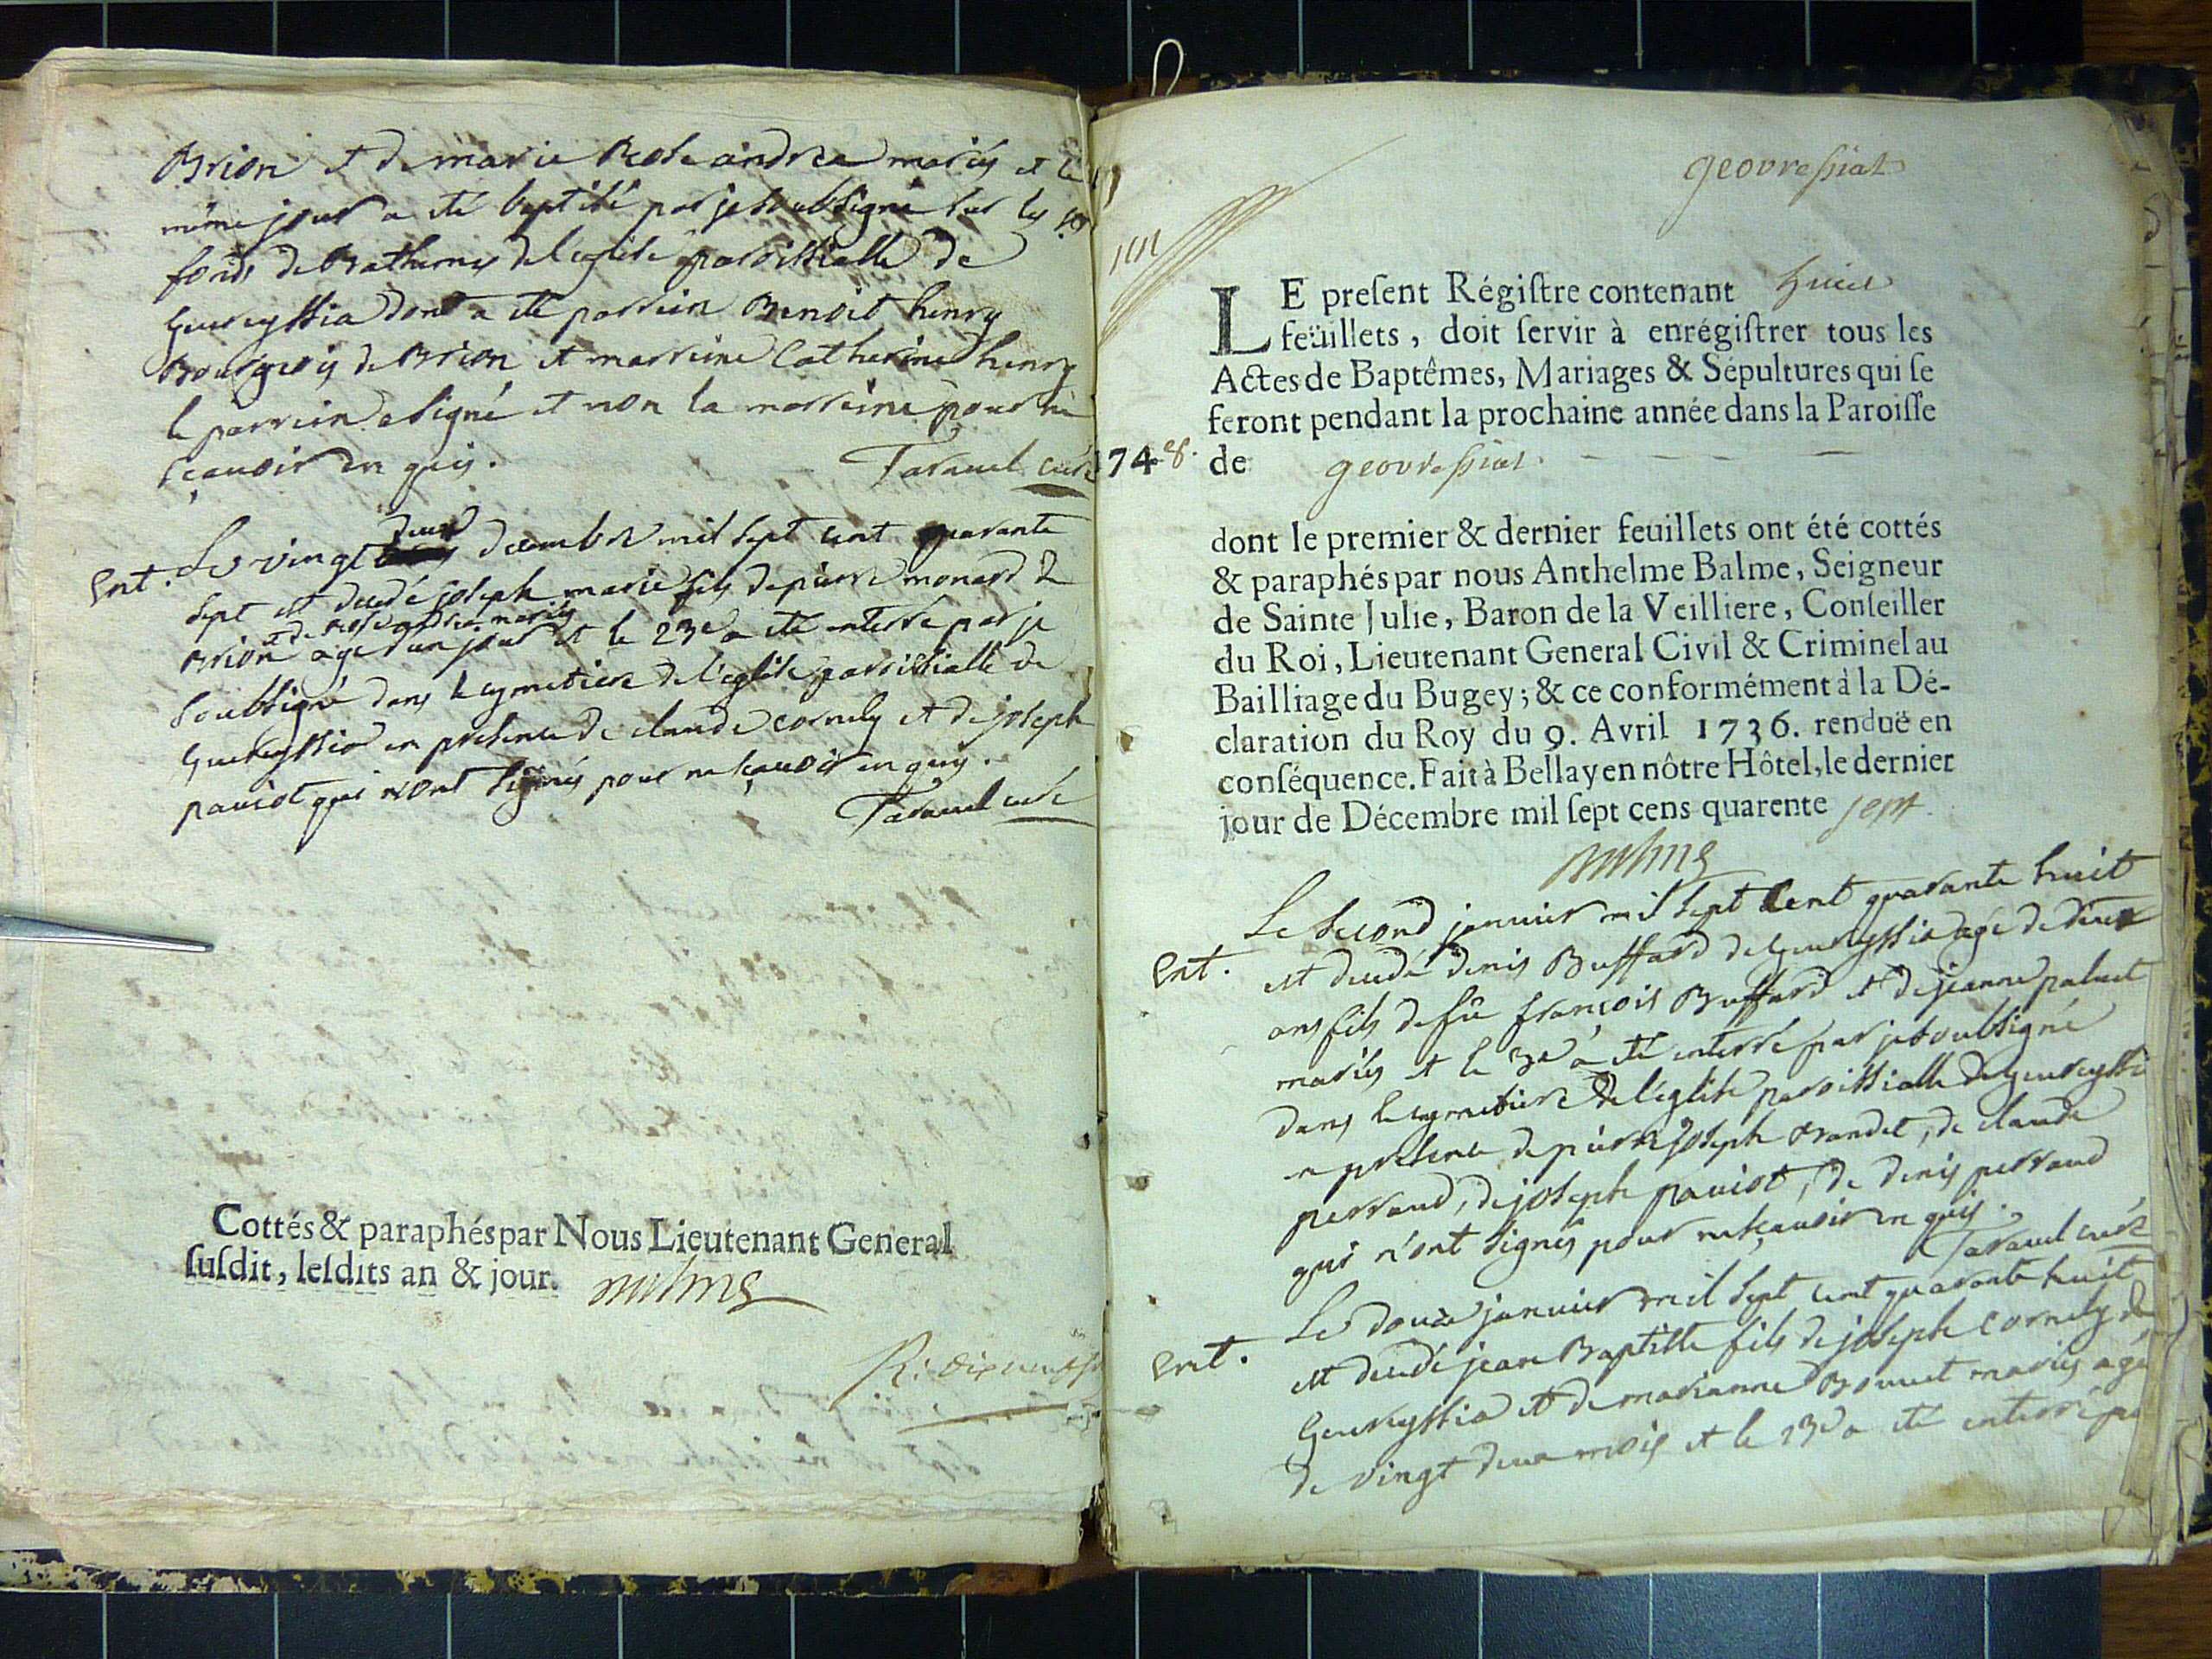 Brion et de marie Rose andrea mariés et le
même jour a été baptisé par je soubsigné sur les
fonds de Bathemes de l'eglise paroissialle de
Geureyssia dont a été parrein Benoit henry
Bourgeois de Brion et marreine Catherine henry
le parrein a signé et non la marreine pour ne
sçauoir en quis.
Tavauel curé
deux
Ent. Le vingt decembre mil sept cent quarante
sept est decedé joseph marie fils de pierre monard de
et de Rose andrea mariés
Brion agé d'un jour et le 23e a été enterré par je
soubsigné dans le cymetiere de l'eglise paroissialle de
Geureyssia en presence de claude cornely et de joseph
pauiot qui n'ont signés pour ne sçauoir en quis.
Tavauel curé
Cottés & paraphés par Nous Lieutenant General
susdit, lesdits an & jour. Balme
geovressiat
LE present Régistre contenant huit
feüillets, doit servir à enrégistrer tous les
Actes de Baptêmes, Mariages & Sépultures qui se
feront pendant la prochaine année dans la Paroisse
1748. de geovressiat
dont le premier & dernier feuillets ont été cottés
& paraphés par nous Anthelme Balme, Seigneur
de Sainte Julie, Baron de la Veilliere, Conseiller
du Roi, Lieutenant General Civil & Criminel au
Bailliage du Bugey; & ce conformément à la Dé-
claration du Roy du 9. Avril 1736. renduë en
conséquence. Fait à Bellay en nôtre Hôtel, le dernier
jour de Décembre mil sept cens quarente sept
Balme
Le second januier mil sept Cent quarante huit
Ent. est decedé denis Buffard de Geureyssia agé de deux
ans fils de fû françois Buffard et de jeanne paluet
mariés et le 3e a été enterré par je soubsigné
dans le cymetiere de l'eglise paroissialle de Geureyssia
en presence de pierre joseph brandet, de claude
perraud, de joseph pauiot, de denis perraud
qui n'ont signés pour ne sçauoir en quis.
Tavauel curé
Le douze januier mil sept cent quarante huit
Ent. est decedé jean Baptiste fils de joseph cornely de
Geureyssia et de marianne Bouuet mariés agé
de vingt deux mois et le 13e a été enterré par